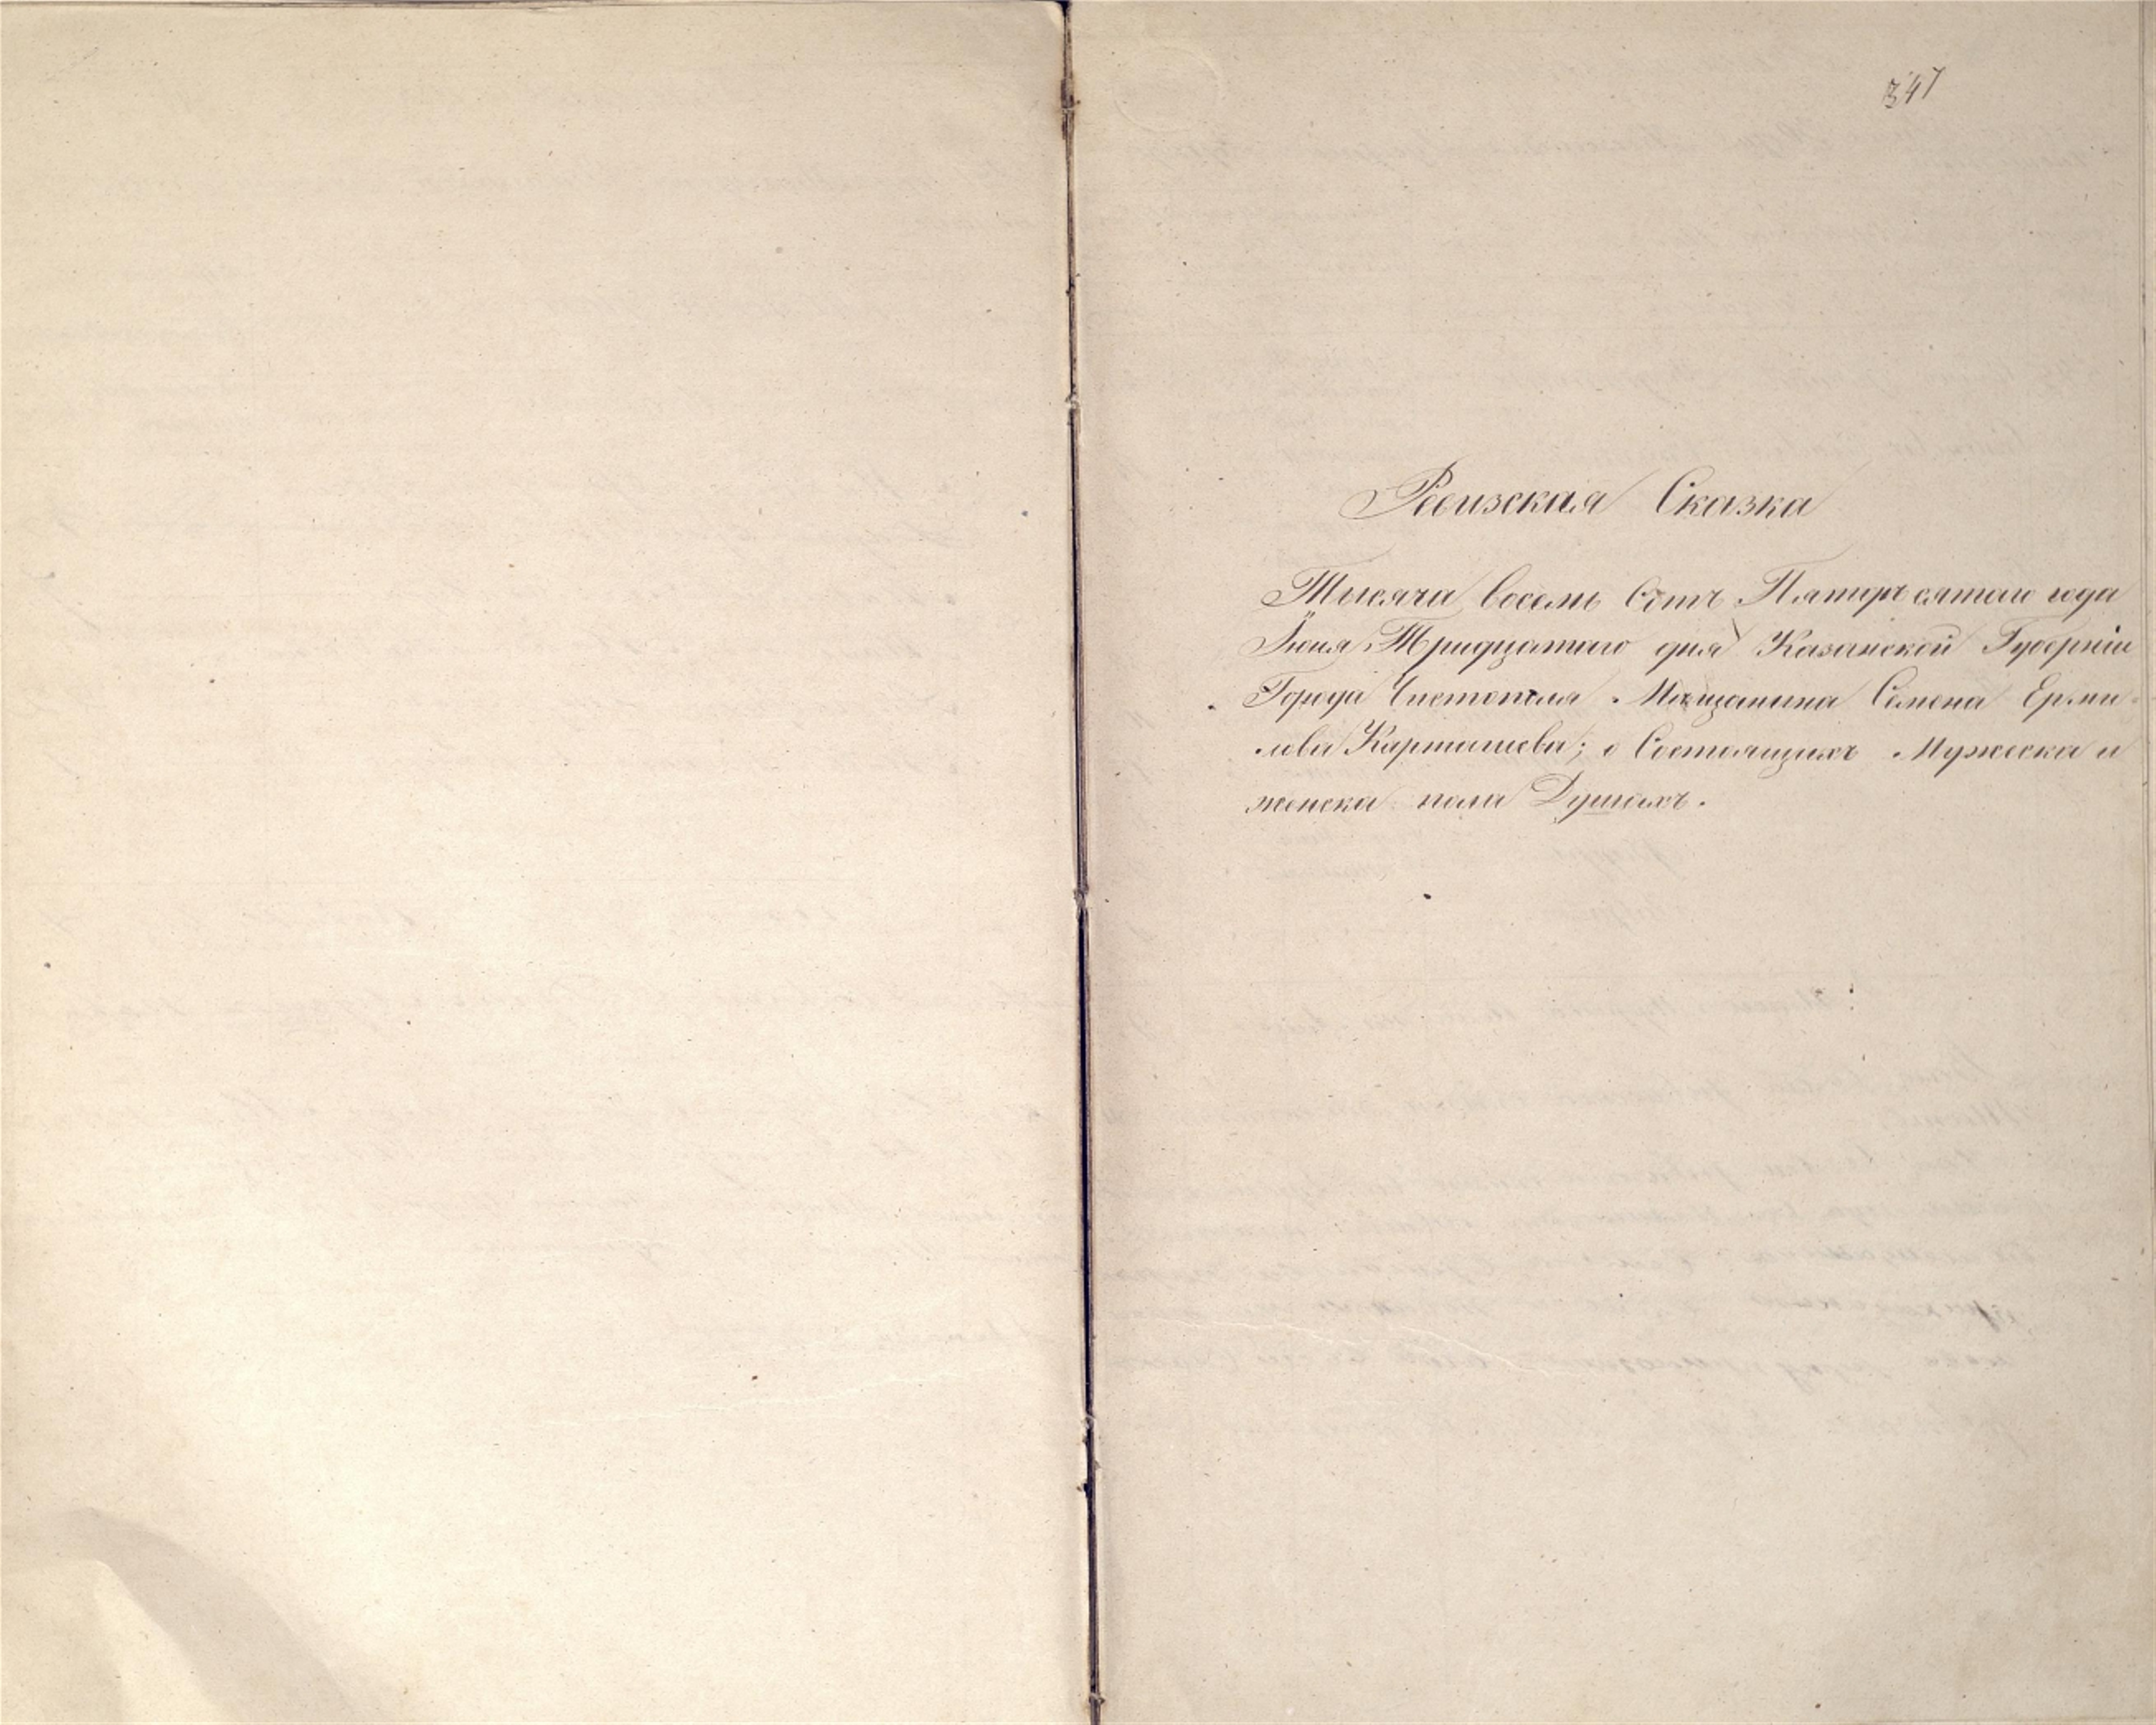 347
Ревизская Сказка
Тысяча восемь Сотъ Пятидесятаго года
Іюня Тридцатаго дня Казанской Губерніи
Города Чистополя Мещанина Семена Ерми-
лова Карташева; о Состоящихъ Мужеска и
женска пола Душахъ.